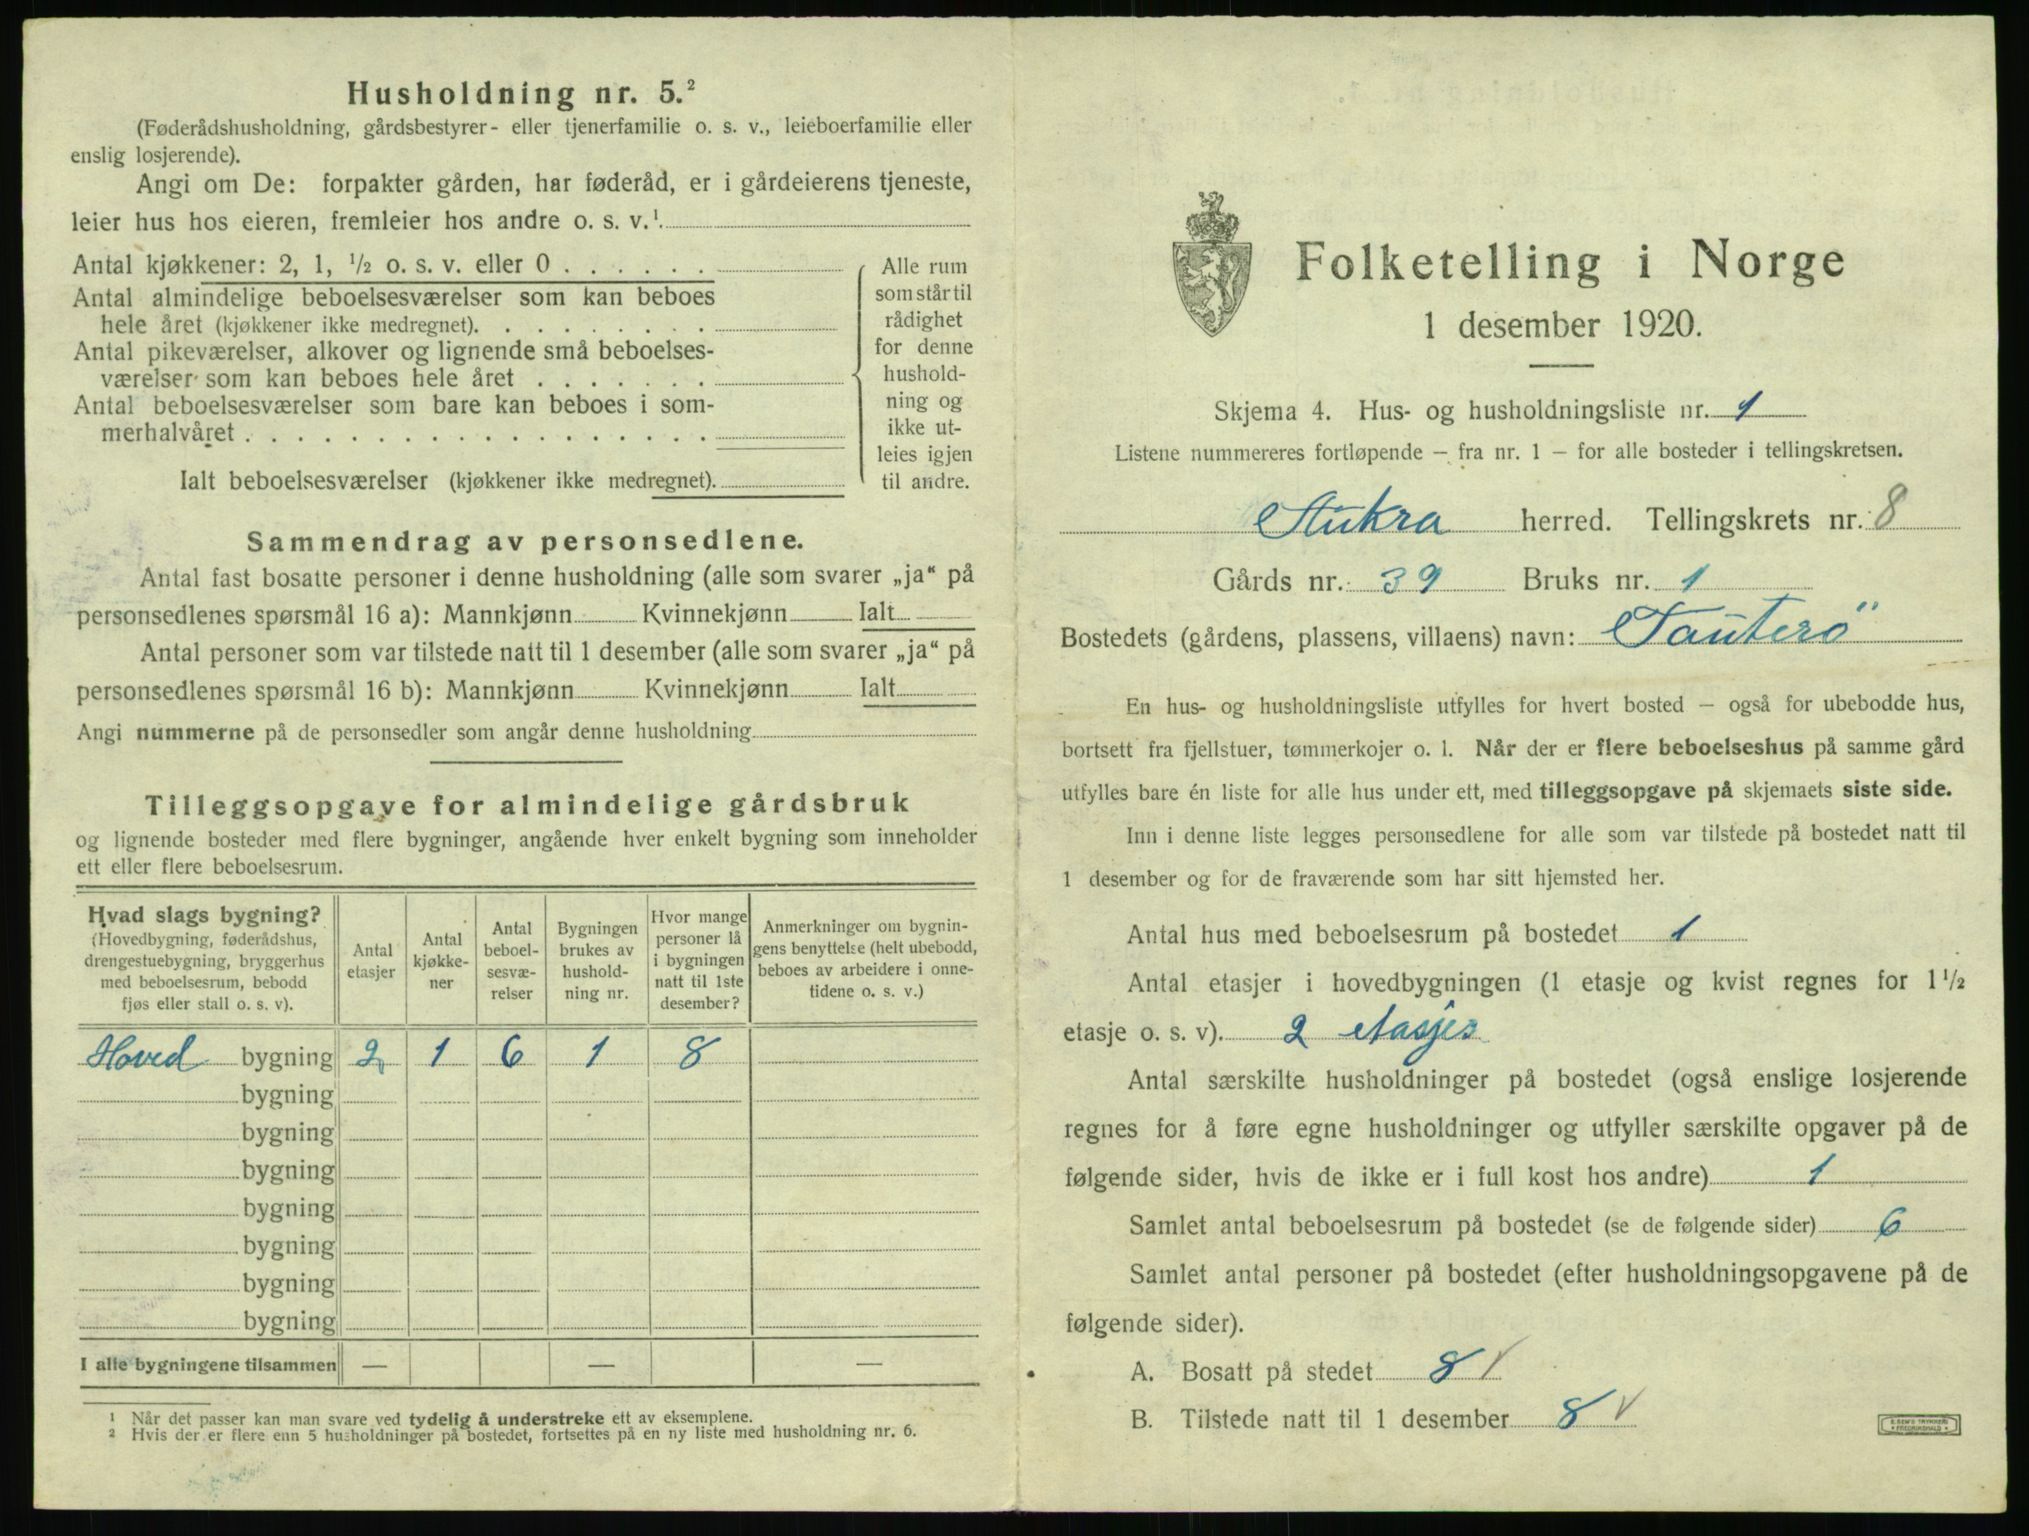 Husholdning nr. 5.²
(Føderådshusholdning, gårdsbestyrer- eller tjenerfamilie o. s. v., leieboerfamilie eller
enslig losjerende).
Angi om De: forpakter gården, har føderåd, er i gårdeierens tjeneste,
leier hus hos eieren, fremleier hos andre o. s. v.¹
Antal kjøkkener: 2, 1, ½ o. s. v. eller 0
Antal almindelige beboelsesværelser som kan beboes
hele året (kjøkkener ikke medregnet).
Antal pikeværelser, alkover og lignende små beboelses-
værelser som kan beboes hele året
Antal beboelsesværelser som bare kan beboes i som-
merhalvåret
Ialt beboelsesværelser (kjøkkener ikke medregnet).
Alle rum
som står til
rådighet
for denne
hushold-
ning og
ikke ut-
leies igjen
til andre.
Sammendrag av personsedlene.
Antal fast bosatte personer i denne husholdning (alle som svarer „ja“ på
personsedlenes spørsmål 16 a): Mannkjønn Kvinnekjønn Ialt
Antal personer som var tilstede natt til 1 desember (alle som svarer „ja“ på
personsedlenes spørsmål 16 b): Mannkjønn Kvinnekjønn Ialt
Angi nummerne på de personsedler som angår denne husholdning
Tilleggsopgave for almindelige gårdsbruk
og lignende bosteder med flere bygninger, angående hver enkelt bygning som inneholder
ett eller flere beboelsesrum.
Hvad slags bygning?
(Hovedbygning, føderådshus,
drengestuebygning, bryggerhus
med beboelsesrum, bebodd
fjøs eller stall o. s. v).
Antal
etasjer
Antal
kjøkke-
ner
Antal
beboel-
sesvæ-
relser
Bygningen
brukes av
hushold-
ning nr.
Hvor mange
personer lå
i bygningen
natt til 1ste
desember?
Anmerkninger om bygnin-
gens benyttelse (helt ubebodd,
beboes av arbeidere i onne-
tidene o. s. v.)
Hoved bygning 2 1 6 1 8
bygning
bygning
bygning
bygning
bygning
bygning
bygning
I alle bygningene tilsammen — — —
¹ Når det passer kan man svare ved tydelig å understreke ett av eksemplene.
² Hvis der er flere enn 5 husholdninger på bostedet, fortsettes på en ny liste med husholdning nr. 6.
Folketelling i Norge
1 desember 1920.
Skjema 4. Hus- og husholdningsliste nr. 1
Listene nummereres fortløpende — fra nr. 1 — for alle bosteder i tellingskretsen.
Aukra herred. Tellingskrets nr. 8
Gårds nr. 39 Bruks nr. 1
Bostedets (gårdens, plassens, villaens) navn: Tauterö
En hus- og husholdningsliste utfylles for hvert bosted — også for ubebodde hus,
bortsett fra fjellstuer, tømmerkojer o. l. Når der er flere beboelseshus på samme gård
utfylles bare én liste for alle hus under ett, med tilleggsopgave på skjemaets siste side.
Inn i denne liste legges personsedlene for alle som var tilstede på bostedet natt til
1 desember og for de fraværende som har sitt hjemsted her.
Antal hus med beboelsesrum på bostedet 1
Antal etasjer i hovedbygningen (1 etasje og kvist regnes for 1½
etasje o. s. v). 2 etasjes
Antal særskilte husholdninger på bostedet (også enslige losjerende
regnes for å føre egne husholdninger og utfyller særskilte opgaver på de
følgende sider, hvis de ikke er i full kost hos andre) 1
Samlet antal beboelsesrum på bostedet (se de følgende sider) 6
Samlet antal personer på bostedet (efter husholdningsopgavene på de
følgende sider).
A. Bosatt på stedet 8
B. Tilstede natt til 1 desember 8